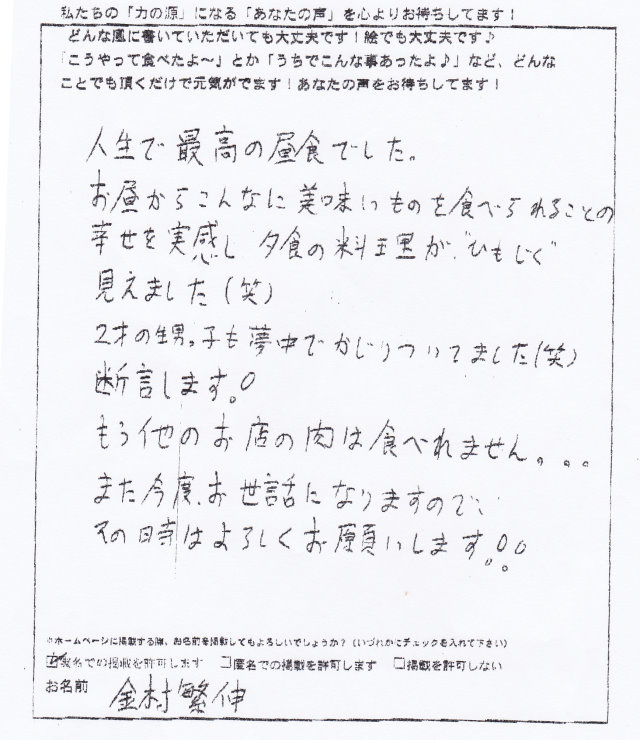 私たちの「力の源」になる「あなたの声」を心よりお待ちしてます!
どんな風に書いていただいても大丈夫です!絵でも大丈夫です♪
「こうやって食べたよ～」とか「うちでこんな事あったよ♪」など、どんな
ことでも頂くだけで元気がでます!あなたの声をお待ちしてます!
人生で最高の昼食でした。
お昼からこんなに美味いものを食べられることの
幸せを実感し 夕食の料理が、"ひもじく"
見えました(笑)
2才の甥っ子も夢中でかじりついてました(笑)
断言します。
もう他のお店の肉は食べれません。。。
また今度、お世話になりますので、
その時はよろしくお願いします!!
※ホームページに掲載する際、お名前を掲載してもよろしいでしょうか?(いづれかにチェックを入れて下さい)
☑実名での掲載を許可します □匿名での掲載を許可します □掲載を許可しない
お名前 金村繁伸